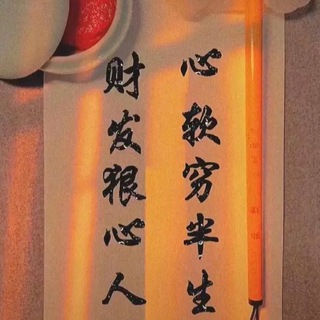 心软穷半生
财发狠心人